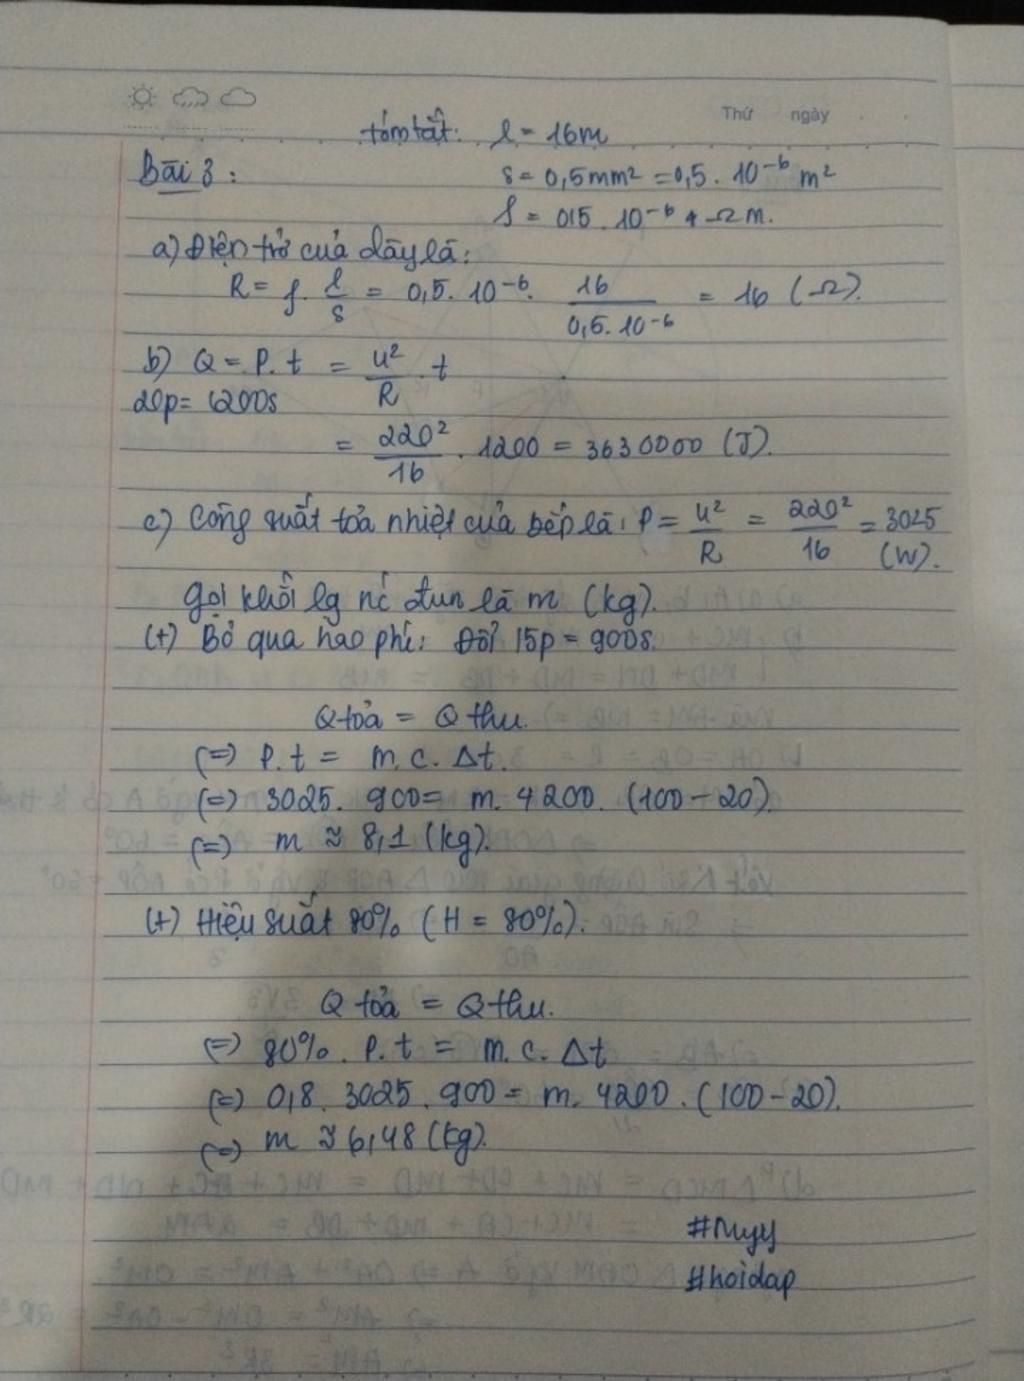 Thứ ngày
tóm tắt: l = 16m
Bài 3:
s = 0,5mm² = 0,5. 10⁻⁶ m²
ρ = 015. 10⁻⁶ Ωm.
a) Điện trở của dây là:
R = ρ. l/s = 0,5. 10⁻⁶. 16/0,5.10⁻⁶ = 16 (Ω).
b) Q = P. t = U²/R . t
20p = 1200s
= 220²/16 . 1200 = 3630000 (J).
c) Công suất tỏa nhiệt của bếp là: P = U²/R = 220²/16 = 3025 (W).
gọi khối lg nc đun là m (kg).
(+) Bỏ qua hao phí: Đổi 15p = 900s.
Q tỏa = Q thu.
(=) P. t = m. c. Δt.
(=) 3025. 900 = m. 4200. (100 - 20).
(=) m ≈ 8,1 (kg).
(+) Hiệu suất 80% (H = 80%).
Q tỏa = Q thu.
(=) 80%. P. t = m. c. Δt
(=) 0,8. 3025. 900 = m. 4200. (100 - 20).
(=) m ≈ 6,48 (kg).
#Myy
#hoidap